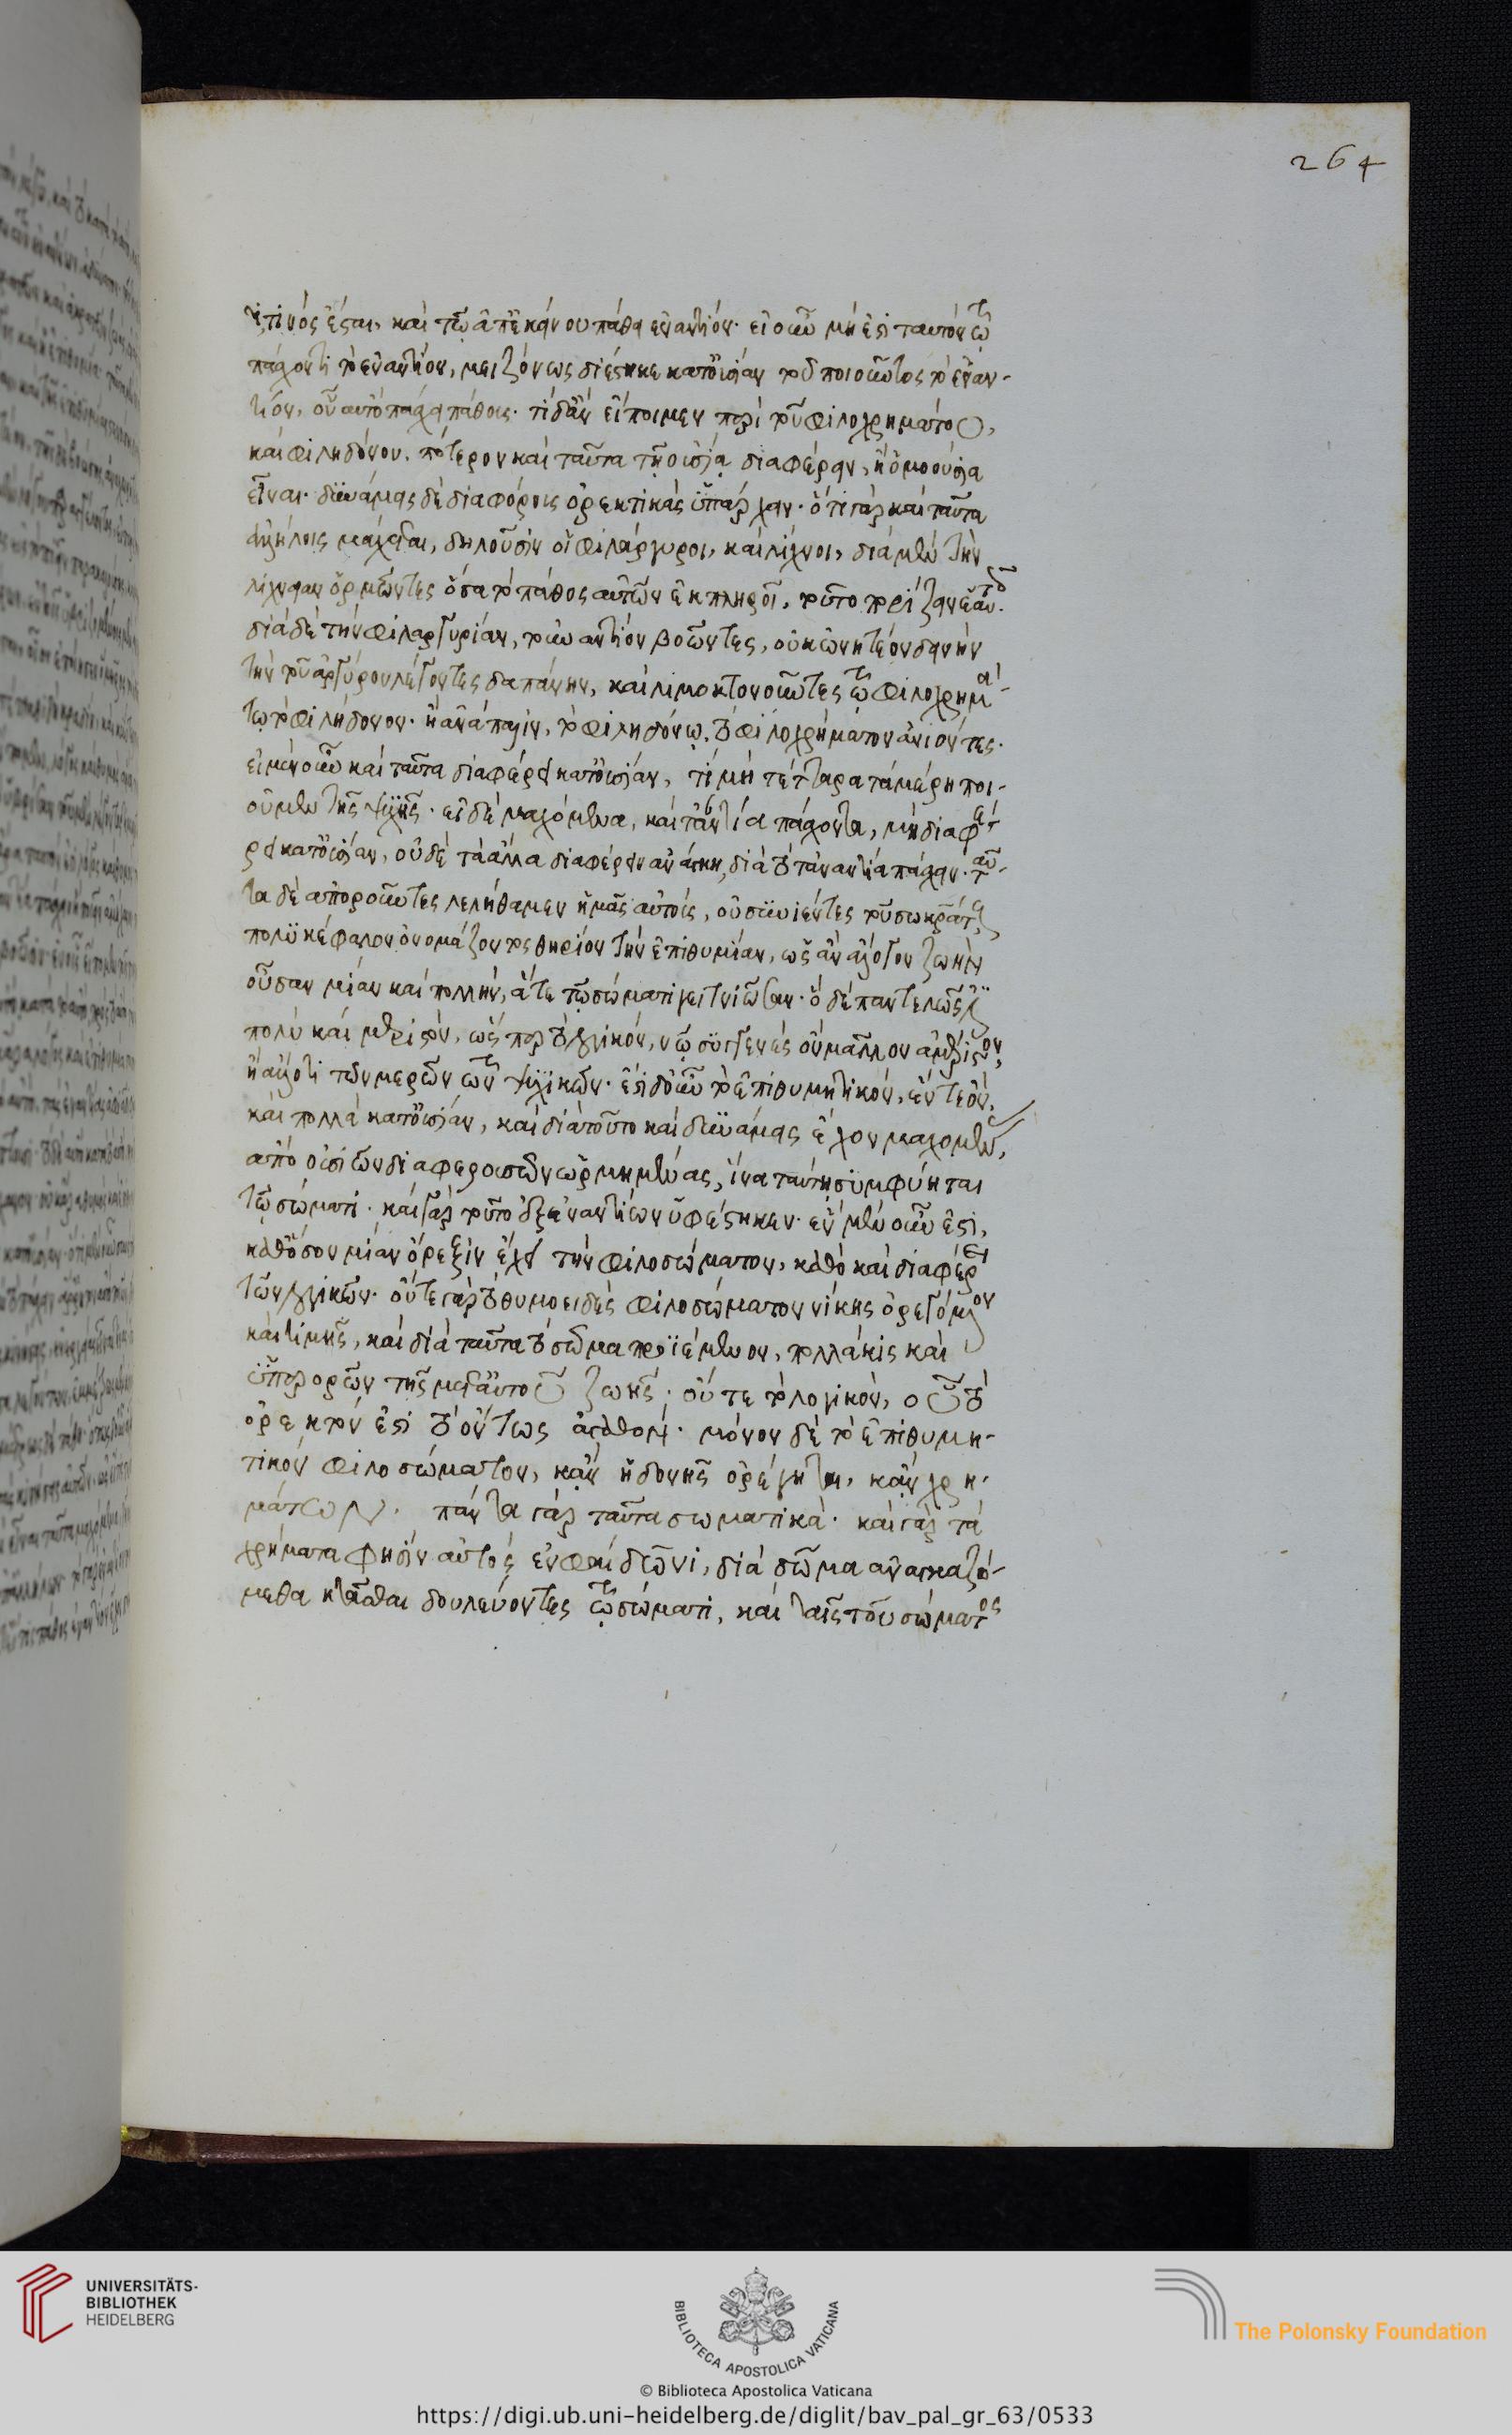 264
τινός ἔσται, καὶ τῷ ἀπ' ἐκείνου πάθει ἐναντίον. εἰ οὖν μή ἐστι ταυτόν τῷ
πάσχοντι τὸ ἐναντίον, μειζόνως διέστηκε κατ' οὐσίαν τοῦ ποιοῦντος τὸ ἐναν-
τίον, οὗ αὐτὸ πάσχει πάθους. τί δ' ἂν εἴποιμεν περὶ τοῦ φιλοχρημάτου,
καὶ φιληδόνου. πότερον καὶ ταῦτα τῇ οὐσίᾳ διαφέρειν, ἢ ὁμοούσια
εἶναι. δυνάμεις δὲ διαφόρους ὀρεκτικὰς ὑπάρχειν. ὅτι γὰρ καὶ ταῦτα
ἀλλήλοις μάχεται, δηλοῦσιν οἱ φιλάργυροι, καὶ λίχνοι, διὰ μὲν τὴν
λιχνείαν ὁρμῶντες ὅσα τὸ πάθος αὐτῶν ἐκπληροῖ, τοῦτο
διὰ δὲ τὴν φιλαργυρίαν, τοὐναντίον βοῶντες, οὐκ ὠνητέον δεινὴν
τὴν τοῦ ἀργύρου λέγοντες δαπάνην, καὶ λιμοκτονοῦντες τῷ φιλοχρημά-
τῳ τὸ φιλήδονον. ἢ ἀνάπαλιν, τῷ φιληδόνῳ τὸ φιλοχρήματον ἀνιῶντες.
εἰ μὲν οὖν καὶ ταῦτα διαφέρει κατ' οὐσίαν, τί μὴ τέτταρα τὰ μέρη ποι-
οῦμεν τῆς ψυχῆς. εἰ δὲ μαχόμενα, καὶ τἀναντία πάσχοντα, μὴ διαφέ-
ρει κατ' οὐσίαν, οὐδὲ τὰ ἄλλα διαφέρειν ἀνάγκη, διὰ τὸ τἀναντία πάσχειν. ταῦ-
τα δὲ ἀποροῦντες λελήθαμεν ἡμᾶς αὐτούς, οὐ συνιέντες τοῦ σωκράτους
πολυκέφαλον ὀνομάζοντος θηρίον τὴν ἐπιθυμίαν, ὡς ἂν ἄλογον ζωὴν
οὖσαν μίαν καὶ πολλήν, ἅτε τῷ σώματι γειτνιῶσαν. ὃ δὲ παντελῶς
πολὺ καὶ μεριστόν, ὥσπερ τὸ λογικόν, νῷ συγγενὲς ὂν μᾶλλον ἀμέριστον,
ἢ ἄλλο τι τῶν μερῶν τῶν ψυχικῶν. ἔστι δ' οὖν τὸ ἐπιθυμητικόν, ἕν τε ὄν,
καὶ πολλὰ κατ' οὐσίαν, καὶ διὰ τοῦτο καὶ δυνάμεις ἔχον μαχομένας,
ἀπὸ οὐσιῶν διαφερουσῶν ὡρμημένας, ἵνα ταύτῃ συμφύηται
τῷ σώματι. καὶ γὰρ τοῦτο ἐξ ἐναντίων ὑφέστηκεν. ἓν μὲν οὖν ἐστι,
καθ' ὅσον μίαν ὄρεξιν ἔχει τὴν φιλοσώματον, καθὸ καὶ διαφέρει
τῶν λοιπῶν. οὔτε γὰρ τὸ θυμοειδὲς φιλοσώματον νίκης ὀρεγόμενον
καὶ τιμῆς, καὶ διὰ ταῦτα τὸ σῶμα προϊέμενον, πολλάκις καὶ
ὑπερορῶν τῆς μετ' αὐτοῦ ζωῆς. οὔτε τὸ λογικόν, οὗ τὸ
ὀρεκτόν ἐστι τὸ ὄντως ἀγαθόν. μόνον δὲ τὸ ἐπιθυμη-
τικόν φιλοσώματον, κἂν ἡδονῆς ὀρέγηται, κἂν χρη-
μάτων. πάντα γὰρ ταῦτα σωματικά. καὶ γὰρ τὰ
χρήματα φησὶν αὐτός ἐν φαίδωνι, διὰ σῶμα ἀναγκαζό-
μεθα κτᾶσθαι δουλεύοντες τῷ σώματι, καὶ ταῖς τοῦ σώματος
UNIVERSITÄTS-
BIBLIOTHEK
HEIDELBERG
BIBLIOTECA APOSTOLICA VATICANA
The Polonsky Foundation
© Biblioteca Apostolica Vaticana
https://digi.ub.uni-heidelberg.de/diglit/bav_pal_gr_63/0533